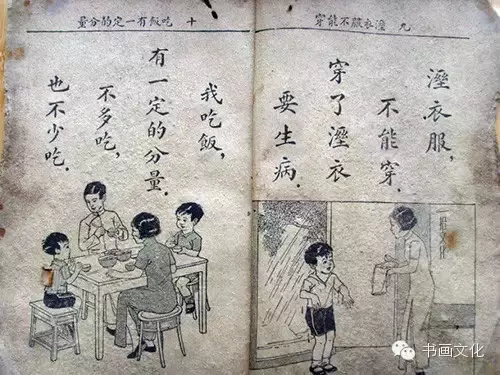 九 溼衣服不能穿
溼衣服,
不能穿.
穿了溼衣
要生病.
十 吃飯有一定的分量
我吃飯,
有一定的分量.
不多吃,
也不少吃.
书画文化